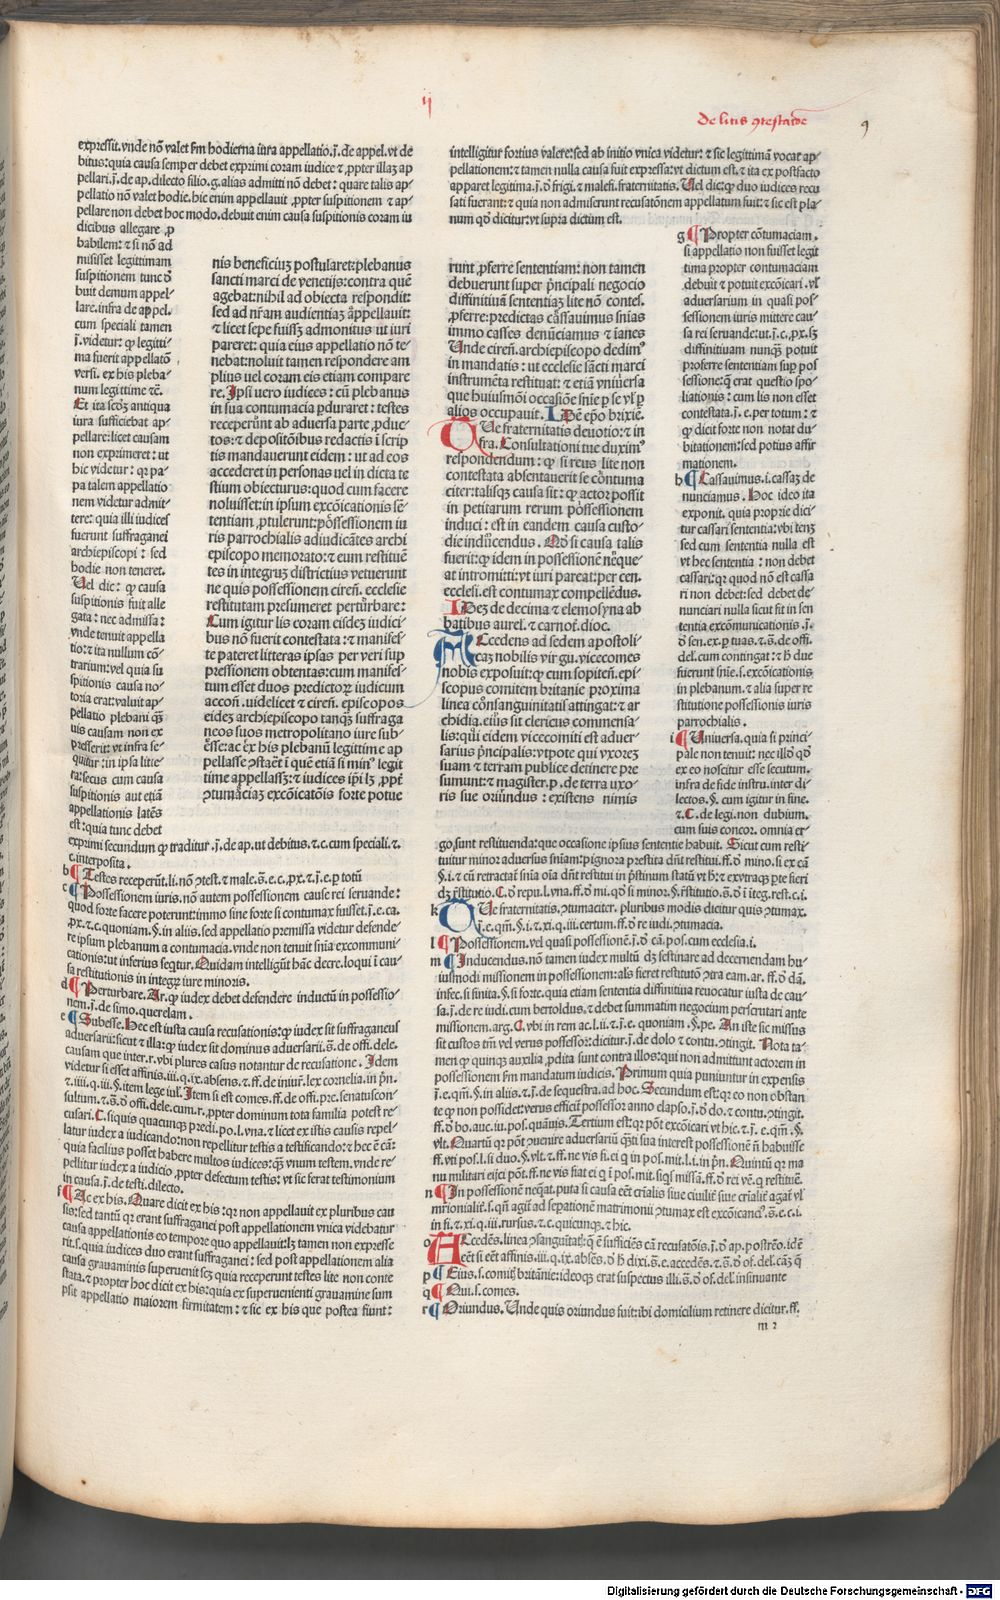 ij
de litis ꝯtestatōe
9
expressit. vnde nō valet ẜm hodierna iura appellatio. j̄. de appel. vt de
bitus: quia causa semper debet exprimi coram iudice ⁊ ꝓpter illaꝫ ap
pellari. j̄. de ap. dilecto filio. g. alias admitti nō debet: quare talis ap⸗
pellatio nō valet hodie. hic enim appellauit ꝓpter suspitionem ⁊ ap⸗
pellare non debet hoc modo. debuit enim causa suspitionis coram iu
dicibus allegare ꝓ
babilem: ⁊ si nō ad
misisset legittimam
suspitionem tunc d̄
buit demum appel⸗
lare. infra de appel.
cum speciali tamen
j̄. videtur: ꝙ legitti⸗
ma fuerit appellatō
versi. ex his pleba⸗
num legittime ⁊c̄.
Et ita scd̄ꝫ antiqua
iura sufficiebat ap⸗
pellare: licet causam
non exprimeret: ut
hic videtur: qꝛ pa⸗
pa talem appellatio
nem videtur admit⸗
tere: quia illi iudices
fuerunt suffraganei
archiepiscopi: sed
hodie non teneret.
Uel dic: ꝙ causa
suspitionis fuit alle
gata: nec admissa:
vnde tenuit appella
tio: ⁊ ita nullum cō⸗
trarium: vel quia su
spitionis causa no⸗
toria erat: valuit ap⸗
pellatio plebani qꝫ̄
uis causam non ex
presserit: vt infra se⸗
quitur: in ipsa litte⸗
ra: secus cum causa
suspitionis aut etiā
appellationis latēs
est: quia tunc debet
exprimi secundum ꝙ traditur. j̄. de ap. ut debitus. ⁊. c. cum speciali. ⁊.
c. interposita.
b ¶ Testes receperūt. li. nō ꝯtest. ⁊ male. s̄. e. c. ꝓx. ⁊. j̄. e. ꝑ totū
c ¶ Possessionem iuris. nō autem possessionem cause rei seruande:
quod forte facere poterunt: immo sine forte si contumax fuisset. j̄. e. ca.
ꝓx. ⁊. c. quoniam. §. in aliis. sed appellatio premissa videtur defende⸗
re ipsum plebanum a contumacia. vnde non tenuit snīa excommuni⸗
cationis: ut inferius seq̄tur. Quidam intelligūt hāc decre. loqui ī cau⸗
sa restitutionis in integꝝ iure minoris.
d ¶ Perturbare. Ar. ꝙ iudex debet defendere inductū in possessio⸗
nem. j̄. de simo. querelam.
e ¶ Subesse. Hec est iusta causa recusationis: ꝙ iudex sit suffraganeus
aduersarii: sicut ⁊ illa: ꝙ iudex sit dominus aduersarii. s̄. de offi. dele.
causam que inter. r. vbi plures casus notantur de recusatione. Idem
videtur si esset affinis. iii. q. ix. absens. ⁊. ff. de iniur̄. lex cornelia. in prī.
⁊. iiii. q. iii. §. item lege iul̄. Item si est comes. ff. de offi. pre. senatuscon⸗
sultum. ⁊. s̄. d̄ offi. dele. cum. r. ꝓpter dominum tota familia potest re⸗
cusari. C. si quis quacunqꝫ predi. po. l. vna. ⁊ licet ex istis causis repel⸗
latur iudex a iudicando: non repellitur testis a testificando: ⁊ hec ē cā:
quia facilius posset habere multos iudices: qꝫ̄ vnum testem. vnde re⸗
pellitur iudex a iudicio ꝓpter defectum testis: vt sic ferat testimonium
in causa. j̄. de testi. dilecto.
f ¶ Ac ex his. Quare dicit ex his: qꝛ non appellauit ex pluribus cau
sis: sed tantū qꝛ erant suffraganei post appellationem vnica videbatur
causa appellationis eo tempore quo appellauit: lꝫ tamen non expresse
rit. s. quia iudices duo erant suffraganei: sed post appellationem alia
causa grauaminis superuenit scꝫ quia receperunt testes lite non conte
stata. ⁊ propter hoc dicit ex his: quia ex superuenienti grauamine sum
psit appellatio maiorem firmitatem: ⁊ sic ex his que postea fiunt:
nis beneficiuꝫ postularet: plebanus
sancti marci de venetijs: contra quē
agebat: nihil ad obiecta respondit:
sed ad nr̄am audientiaꝫ appellauit:
⁊ licet sepe fuissꝫ admonitus ut iuri
pareret: quia eius appellatio nō te⸗
nebat: noluit tamen respondere am
plius uel coram eis etiam compare
re. Ipsi uero iudices: cū plebanus
in sua contumacia ꝑduraret: testes
receperūnt ab aduersa parte ꝓduc⸗
tos: ⁊ depositōibus redactis ī scrip
tis mandauerunt eidem: ut ad eos
accederet in personas uel in dicta te
stium obiecturus: quod cum facere
noluisset: in ipsum excōicationis sē⸗
tentiam ꝓtulerunt: possessionem iu
ris parrochialis adiudicātes archi
episcopo memorato: ⁊ eum restituē⸗
tes in integrꝫ districtius vetuerunt
ne quis possessionem cireñ. ecclesie
restitutam presumeret perturbare:
Cum igitur lis coram eisdeꝫ iudici⸗
bus nō fuerit contestata: ⁊ manifes⸗
te pateret litteras ipsas per veri sup
pressionem obtentas: cum manifes⸗
tum esset duos predictoꝝ iudicum
accoñ. uidelicet ⁊ cireñ. episcopos
eideꝫ archiepiscopo tanqꝫ suffraga
neos suos metropolitano iure sub⸗
esse: ac ex his plebanū legittime ap
pellasse ꝯstaēt ī quē etiā si minꝰ legit
time appellassꝫ: ⁊ iudices ipī lꝫ ꝓpt̄
ꝯtumāciaꝫ excōicatōis forte potue
runt ꝓferre sententiam: non tamen
debuerunt super p̄ncipali negocio
diffinitiuā sententiaꝫ lite nō contes.
ꝓferre: predictas cassauimus snīas
immo casses denūciamus ⁊ ianes
Unde cireñ. archiepiscopo dedimꝰ
in mandatis: ut ecclesie sācti marci
instrumēta restituat: ⁊ etiā vniuersa
que huiusmōi occasiōe snīe ꝑ se vl̄ ꝑ
alios occupauit. Idē ep̄o brixie.
Que fraternitatis deuotio: ⁊ in
fra. Consultationi tue duximꝰ
respondendum: ꝙ si reus lite non
contestata absentauerit se cōtuma
citer: talisqꝫ causa sit: ꝙ actor possit
in petitarum rerum possessionem
induci: est in eandem causa custo⸗
die inducendus. Qd̄ si causa talis
fuerit: ꝙ idem in possessionē neque⸗
at intromitti: vt iuri pareat: per cen.
ecclesi. est contumax compellēdus.
Ideꝫ de decima ⁊ elemosyna ab
batibus aurel. ⁊ carnot. dioc.
Accedens ad sedem apostoli⸗
caꝫ nobilis vir gu. vicecomes
nobis exposuit: ꝙ cum sopiteñ. epi⸗
scopus comitem britanie proxima
linea cōsanguinitatis attingat: ⁊ ar
chidia. eius sit clericus commensa⸗
lis: qui eidem vicecomiti est aduer⸗
sarius p̄ncipalis: vtpote qui vxoreꝫ
suam ⁊ terram publice detinere pre
sumunt: ⁊ magister. p. de terra uxo⸗
ris sue oriundus: existens nimis
intelligitur fortius valere: sed ab initio vnica videtur: ⁊ sic legittimā vocat ap⸗
pellationem: ⁊ tamen nulla causa fuit expressa: vt dictum est. ⁊ ita ex postfacto
apparet legitima. j̄. d̄ frigi. ⁊ malefi. fraternitatis. Uel dic: ꝙ duo iudices recu
sati fuerant: ⁊ quia non admiserunt recusatōnem appellatum fuit: ⁊ sic est pla⸗
num qd̄ dicitur: vt supra dictum est.
g ¶ Propter cōtumaciam.
si appellatio non fuisset legit
tima propter contumaciam
debuit ⁊ potuit excōicari. vl̄
aduersarium in quasi pos⸗
sessionem iuris mittere cau⸗
sa rei seruande: ut. j̄. c. ꝓx. sꝫ
diffinitiuam nunqꝫ potuit
proferre sententiam suꝑ pos
sessione: q̄ erat questio spo⸗
liationis: cum lis non esset
contestata. j̄. e. per totum: ⁊
ꝙ dicit forte non notat du⸗
bitationem: sed potius affir
mationem.
h ¶ Cassauimus. i. cassaꝫ de
nunciamus. Hoc ideo ita
exponit. quia proprie dici⸗
tur cassari sententia: vbi tenꝫ
sed cum sententia nulla est
vt hec sententia: non debet
cassari: qꝛ quod nō est cassa
ri non debet: sed debet de⸗
nunciari nulla sicut fit in sen
tentia excōmunicationis. j̄.
d̄ sen. ex. ꝑ tuas. ⁊. s̄. de offi.
del. cum contingat: ⁊ h̄ due
fuerunt snīe. s. excōicationis
in plebanum. ⁊ alia super re
stitutione possessionis iuris
parrochialis.
i ¶ Uniuersa. quia si princi⸗
pale non tenuit: nec illd̄ qd̄
ex eo noscitur esse secutum.
infra de fide instru. inter di⸗
lectos. §. cum igitur in fine.
⁊. C. de legi. non dubium.
cum suis concor. omnia er⸗
go sunt restituenda: que occasione ipsius sententie habuit. Sicut cum resti⸗
tuitur minor aduersus snīam: pignora prestita dn̄t restitui. ff. d̄ mino. si ex cā
§. i. ⁊ cū retractat̄ snīa oīa dn̄t restitui in p̄stinum statū vt h̄: ⁊ extraqꝫ pte fieri
dꝫ r̄stitutio. C. d̄ repu. l. vna. ff. d̄ mi. qd̄ si minor. §. r̄stitutio. s̄. d̄ ī iteg. rest. c. j̄.
k Que fraternitatis. ꝯtumaciter. pluribus modis dicitur quis ꝯtumax.
j̄. e. qm̄. §. i. ⁊. xi. q. iii. certum. ff. d̄ re iudi. ꝯtumacia.
l ¶ Possessionem. vel quasi possessionē. j̄. d̄ cā. pos. cum ecclesia. i.
m ¶ Inducendus. nō tamen iudex multū dꝫ festinare ad decernendam hu⸗
iusmodi missionem in possessionem: als fieret restitutō ꝯtra eam. ar. ff. d̄ dā.
infec. si finita. §. si forte. quia etiam sententia diffinitiua reuocatur iusta de cau⸗
sa. j̄. de re iudi. cum bertoldus. ⁊ debet summatim negocium perscrutari ante
missionem. arg. C. vbi in rem ac. l. ii. ⁊. j̄. e. quoniam. §. pe. An iste sic missus
sit custos tm̄ vel verus possessor: dicitur. j̄. de dolo ⁊ contu. ꝯtingit. Nota ta⸗
men ꝙ quinqꝫ auxilia ꝓdita sunt contra illos: qui non admittunt actorem in
possessionem ẜm mandatum iudicis. Primum quia puniuntur in expensis
j̄. e. qm̄. §. in aliis. ⁊. j̄. de sequestra. ad hoc. Secundum est: qꝛ eo non obstan
te ꝙ non possidet: verus efficit̄ possessor anno elapso. j̄. d̄ do. ⁊ contu. ꝯtingit.
ff. d̄ bo. auc. iu. pos. quāuis. Tertium est: qꝛ pōt excōicari vt hic. ⁊. j̄. e. qm̄. §.
vlt. Quartū qꝛ pōt ꝯuenire aduersariū q̄nti sua interest possessionē n̄ habuisse
ff. vti pos. l. si duo. §. vlt. ⁊. ff. ne vis fi. ei q̄ in pos. mit. l. i. in prī. Quintū qꝛ ma
nu militari eijci pōt. ff. ne vis fiat ei q̄ ī pos. mit. si q̄s missꝰ. ff. d̄ rei ve. q̄ restituē.
n ¶ In possessionē neq̄at. puta si causa eēt crīalis siue ciuilis siue crīalit̄ agat̄ vl̄
mr̄ionialit̄. s. qn̄ agit̄ ad sepationē matrimonii ꝯtumax est excōicandꝰ. s̄. e. c. i.
in fi. ⁊. xi. q. iii. rursus. ⁊. c. quicunqꝫ. ⁊ hic.
o Accedēs. linea ꝯsanguītatꝭ: q̄ ē sufficiēs cā recusatōis. j̄. d̄ ap. postrēo. idē
eēt si eēt affinis. iii. q. ix. absēs. d̄ h̄ dixi. s̄. e. accedēs. ⁊. s̄. d̄ of. del. caꝫ q̄
p ¶ Eius. s. comitꝭ britānie: ideoqꝫ erat suspectus illi. s̄. d̄ of. del. insinuante
q ¶ Qui. s. comes.
r ¶ Oriundus. Unde quis oriundus fuit: ibi domicilium retinere dicitur. ff.
m 2
Digitalisierung gefördert durch die Deutsche Forschungsgemeinschaft - DFG